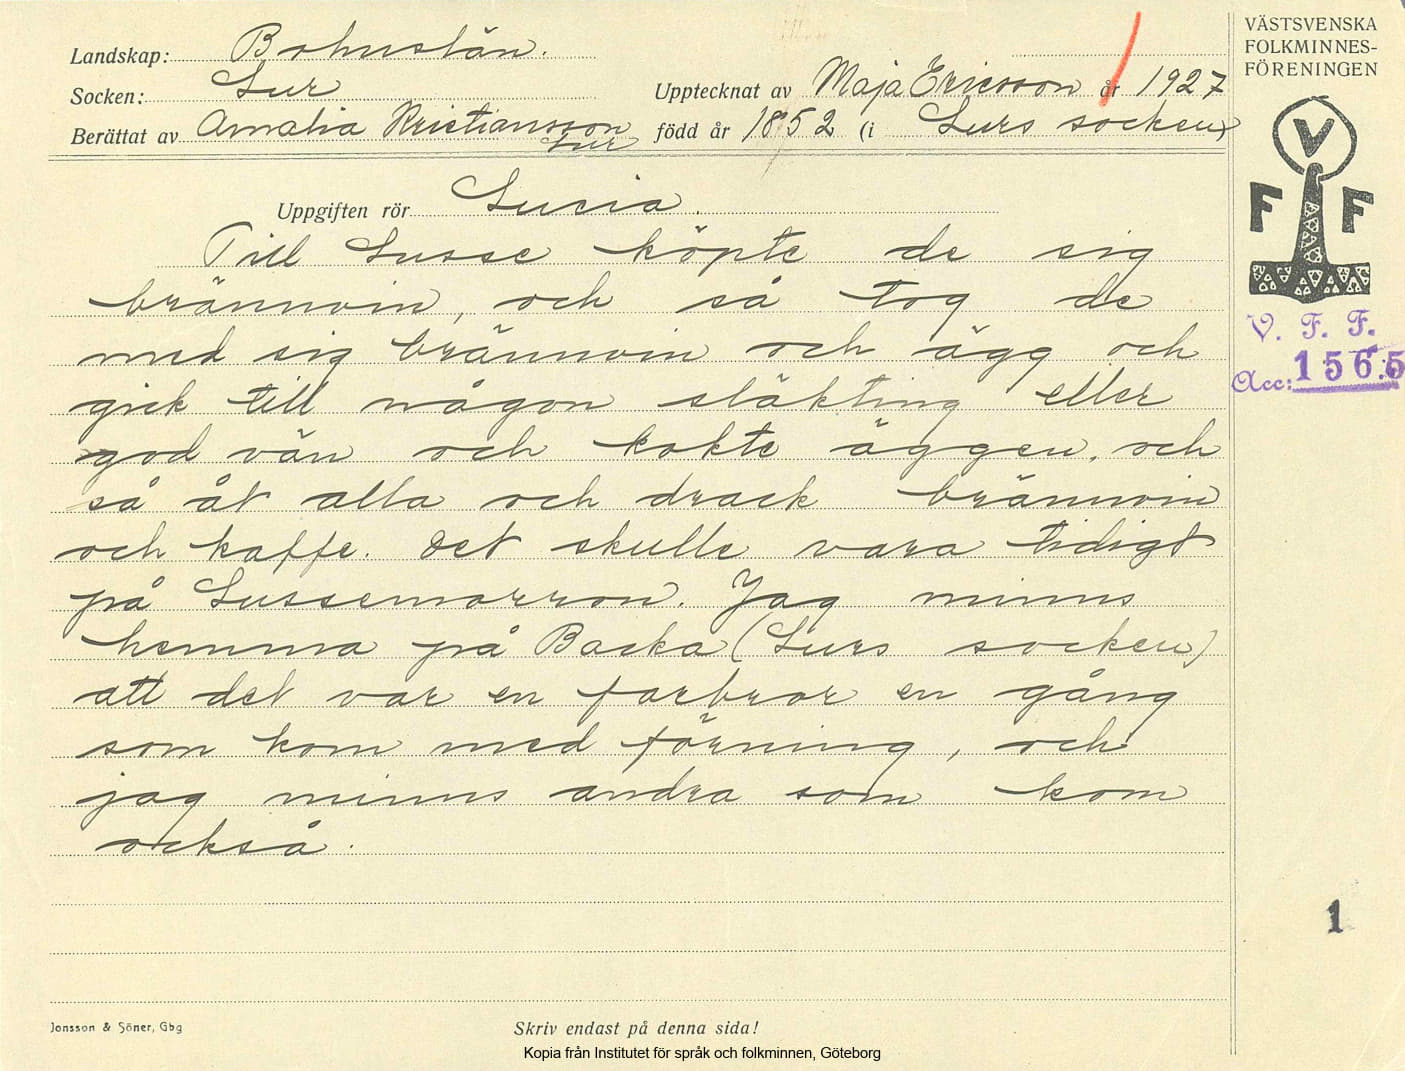 Landskap: Bohuslän.
Socken: Lur
Upptecknat av Maja Ericsson år 1927
Berättat av Amalia Kristiansson
Lur
född år 1852 (i Lurs socken)
VÄSTSVENSKA
FOLKMINNES-
FÖRENINGEN
V
F F
V. F. F.
Acc: 1565
Uppgiften rör Lucia.
Till Lusse köpte de sig
brännvin, och så tog de
med sig brännvin och ägg och
gick till någon släkting eller
god vän och kokte äggen, och
så åt alla och drack brännvin
och kaffe. Det skulle vara tidigt
på Lussemorron. Jag minns
hemma på Backa (Lurs socken)
att det var en farbror en gång
som kom med förning, och
jag minns andra som kom
också.
1
Jonsson & Söner, Gbg
Skriv endast på denna sida!
Kopia från Institutet för språk och folkminnen, Göteborg